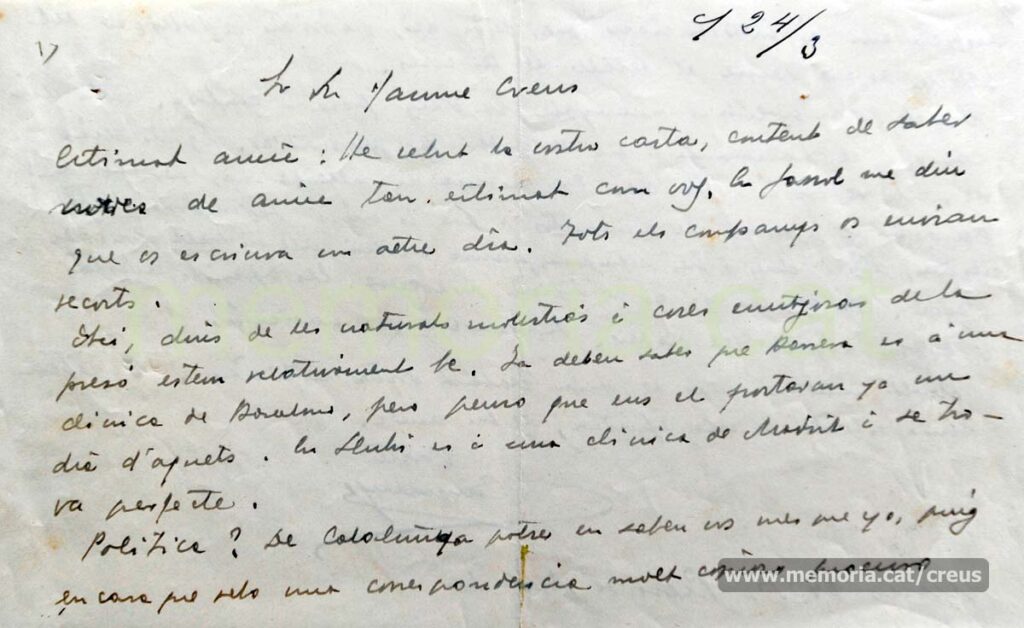 1)
24/3
Sr Dn Jaume Creus
Estimat amic: He rebut la vostra carta, content de saber
noticies de amic tan estimat com vos. En Gassol me diu
que os escriura un altre dia. Tots els companys os envian
recorts.
Aqui, dins de les naturals molesties i coses enutjosas de la
presó estem relativament be. Ja deben saber que Barrera es á una
clinica de Barcelona, pero penso que ens el portaran ya un
dia d'aquets. En Lluhi es á una clinica de Madrit i se tro-
va perfecte.
Politica? De Catalunya potser en saben vos mes que yo, puig
encara que rebo una correspondencia molt copiosa
memoria.cat
www.memoria.cat/creus